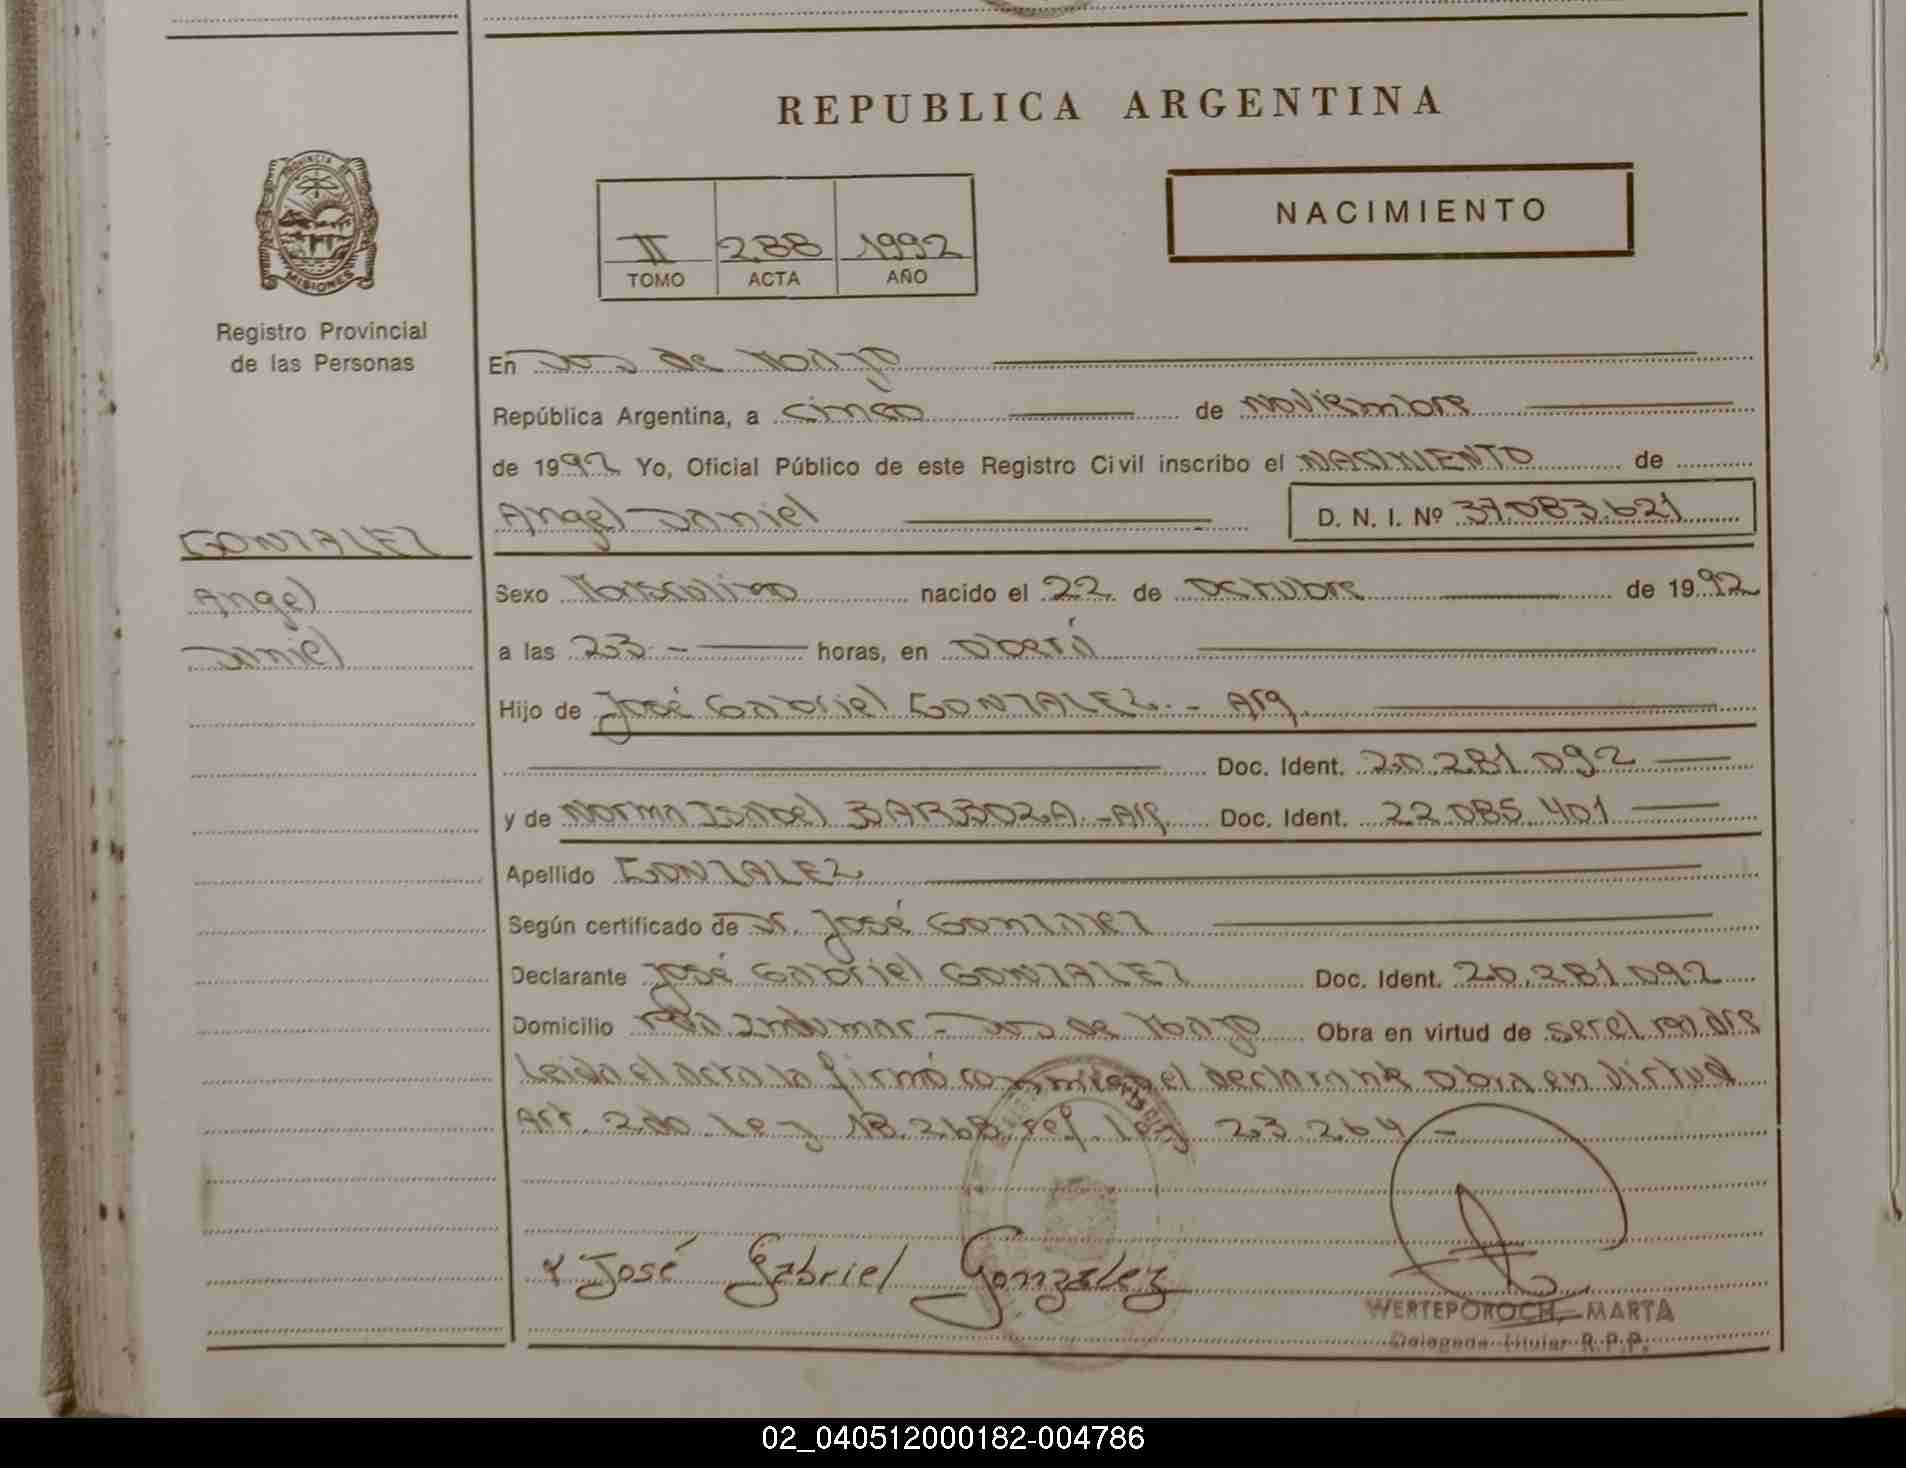 REPUBLICA ARGENTINA
PROVINCIA DE
MISIONES
Registro Provincial
de las Personas
NACIMIENTO
II 288 1992
TOMO ACTA AÑO
En Dos de Mayo
República Argentina, a cinco de noviembre
de 1992 Yo, Oficial Público de este Registro Civil inscribo el NACIMIENTO de
Angel Daniel D. N. I. Nº 37.083.621
GONZALEZ
Angel
Daniel
Sexo Masculino nacido el 22 de octubre de 1992
a las 23 - horas, en Oberá
Hijo de José Gabriel GONZALEZ.- Arg
Doc. Ident. 20.281.092
y de Norma Isabel BARBOZA -Arg. Doc. Ident. 22.085.401
Apellido GONZALEZ
Según certificado de Dr. José Gonzalez
Declarante José Gabriel GONZALEZ Doc. Ident. 20.281.092
Domicilio - Dos de Mayo Obra en virtud de ser el padre
Leida el acta la firmó conmigo el declarante obra en virtud
Art. 2do Ley 18.248 ref. Ley 23.264 -
José Gabriel Gonzalez
WERTEPOROCH, MARTA
Delegada Titular R.P.P.
02_040512000182-004786